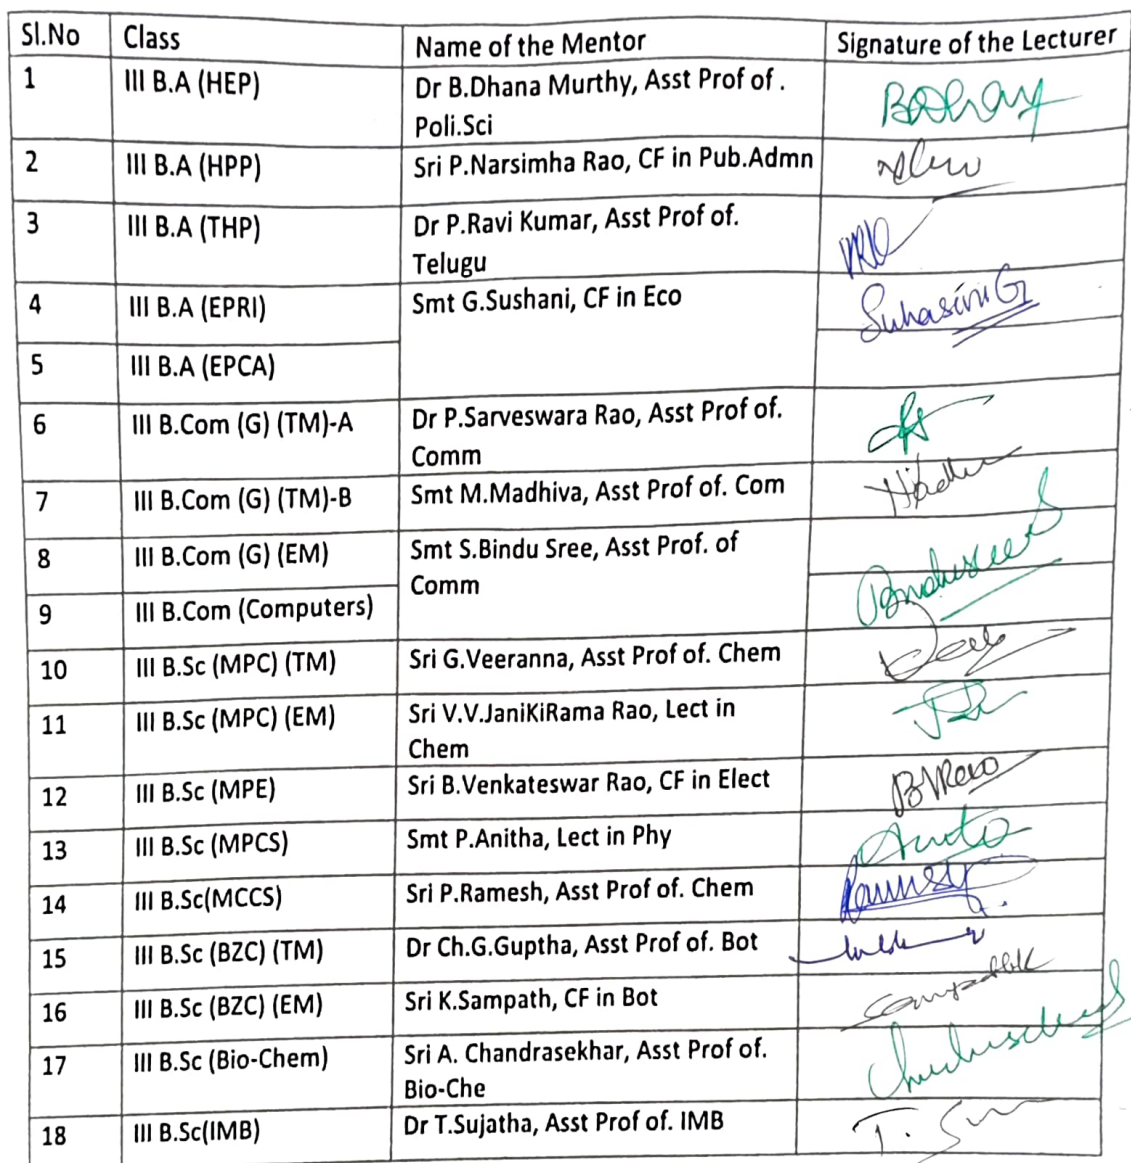 Sl.No Class Name of the Mentor Signature of the Lecturer
1 III B.A (HEP) Dr B.Dhana Murthy, Asst Prof of .
Poli.Sci
2 III B.A (HPP) Sri P.Narsimha Rao, CF in Pub.Admn
3 III B.A (THP) Dr P.Ravi Kumar, Asst Prof of.
Telugu
4 III B.A (EPRI) Smt G.Sushani, CF in Eco Suhasini G
5 III B.A (EPCA)
6 III B.Com (G) (TM)-A Dr P.Sarveswara Rao, Asst Prof of.
Comm
7 III B.Com (G) (TM)-B Smt M.Madhiva, Asst Prof of. Com
8 III B.Com (G) (EM) Smt S.Bindu Sree, Asst Prof. of
Comm
9 III B.Com (Computers)
10 III B.Sc (MPC) (TM) Sri G.Veeranna, Asst Prof of. Chem
11 III B.Sc (MPC) (EM) Sri V.V.JaniKiRama Rao, Lect in
Chem
12 III B.Sc (MPE) Sri B.Venkateswar Rao, CF in Elect BVRao
13 III B.Sc (MPCS) Smt P.Anitha, Lect in Phy
14 III B.Sc(MCCS) Sri P.Ramesh, Asst Prof of. Chem
15 III B.Sc (BZC) (TM) Dr Ch.G.Guptha, Asst Prof of. Bot
16 III B.Sc (BZC) (EM) Sri K.Sampath, CF in Bot
17 III B.Sc (Bio-Chem) Sri A. Chandrasekhar, Asst Prof of.
Bio-Che
18 III B.Sc(IMB) Dr T.Sujatha, Asst Prof of. IMB